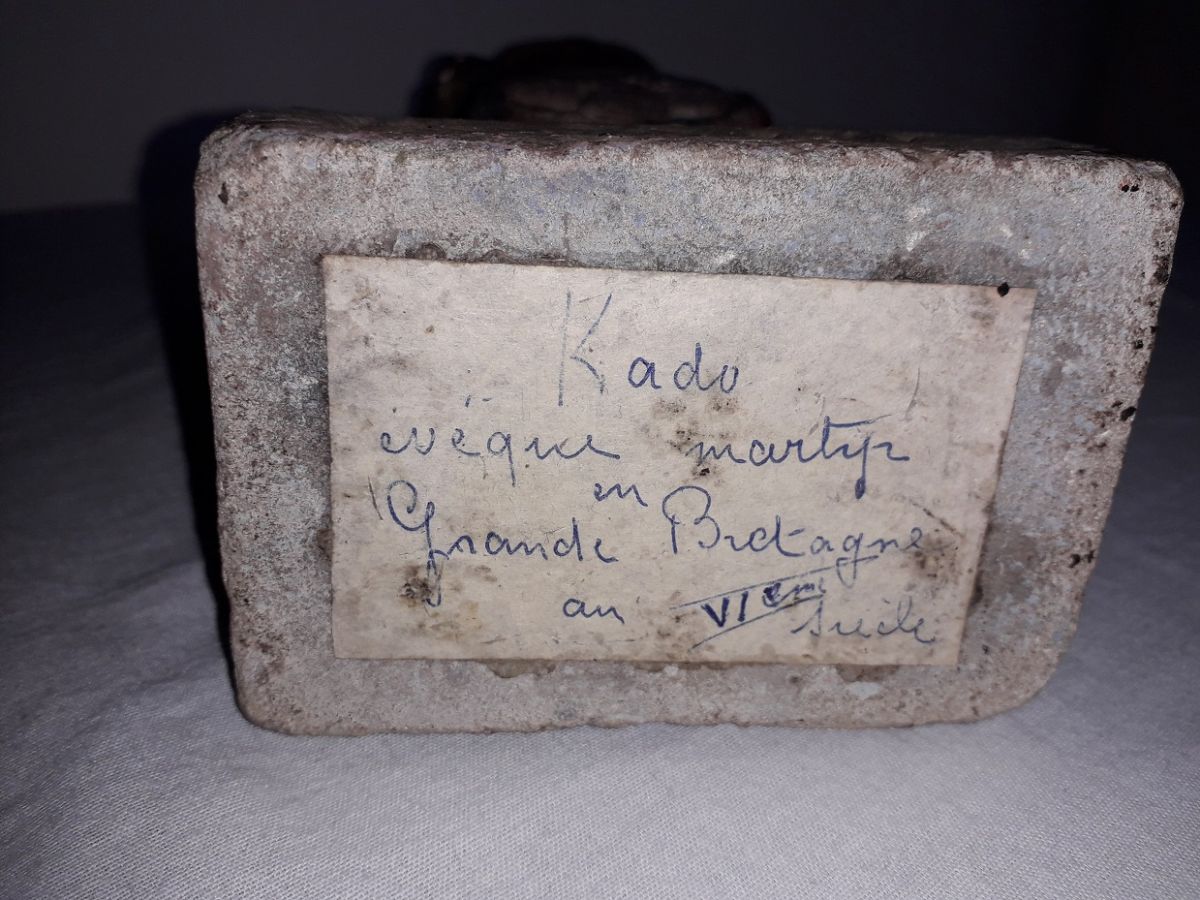 Kado
évêque martyr
en
Grande Bretagne
au VIème siècle